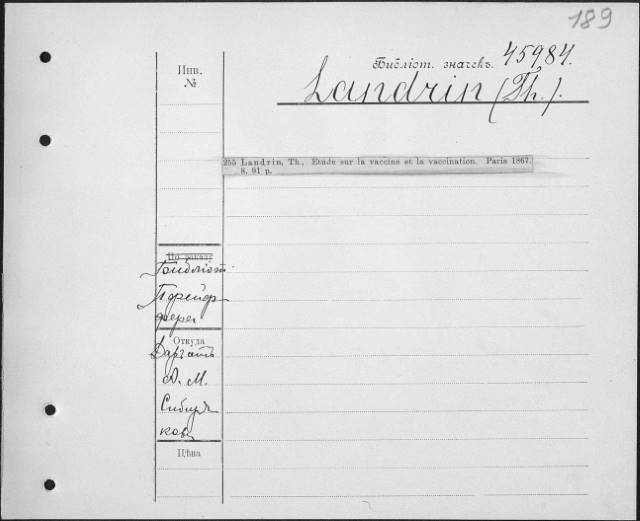 189
Библіот. значекъ. 45984.
Инв.
№
Landrin (Th.).
255 Landrin, Th., Etude sur la vaccine et la vaccination. Paris 1867.
8. 91 p.
По заказу
Библіот.
Пфейф-
фера
Откуда
Даръ отъ
А. М.
Сибиря
кова
Цѣна